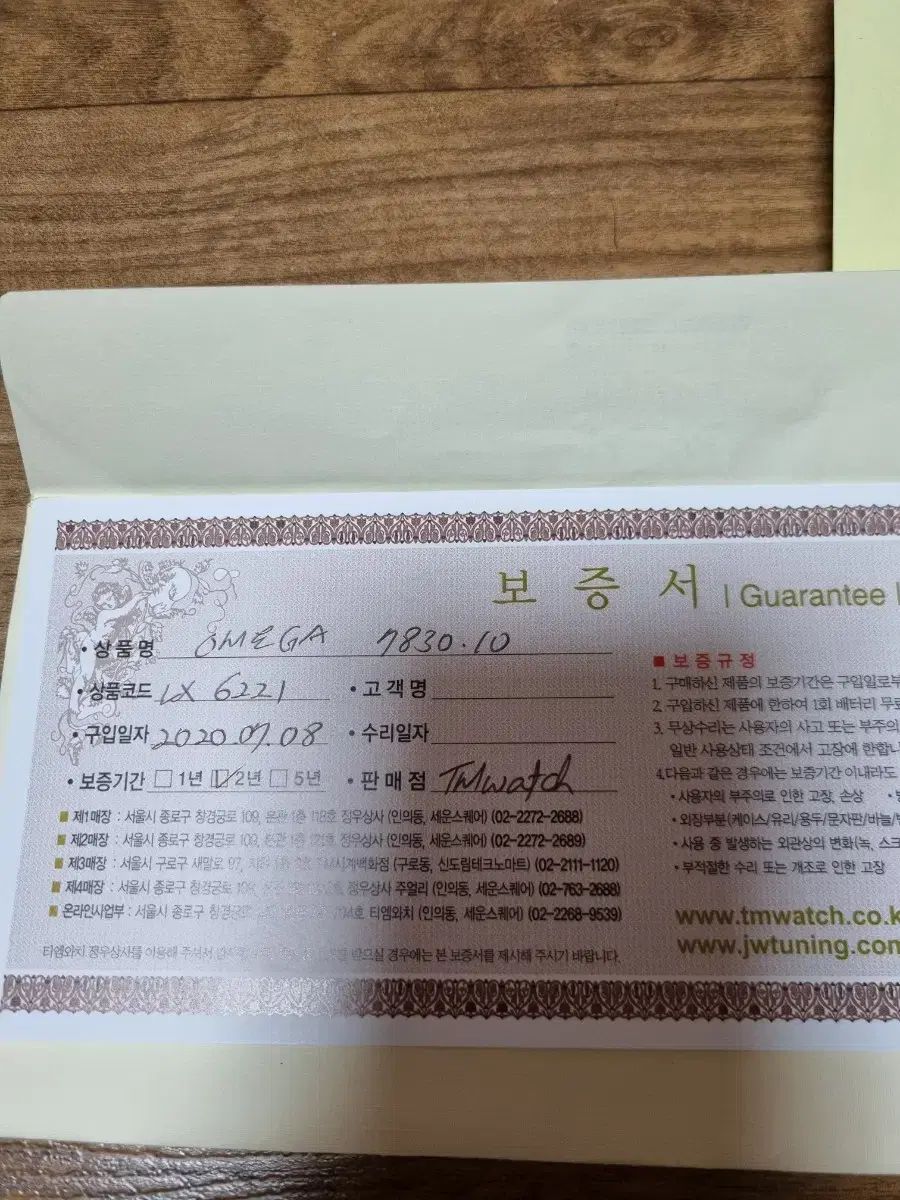 보증서 | Guarantee
• 상품명 OMEGA 7830.10
• 상품코드 LX 6221 • 고객명
• 구입일자 2020.07.08 • 수리일자
• 보증기간 □ 1년 ☑ 2년 □ 5년 • 판매점 TMwatch
■ 제1매장 : 서울시 종로구 창경궁로 109, 본관 1층 118호 정우상사 (인의동, 세운스퀘어) (02-2272-2688)
■ 제2매장 : 서울시 종로구 창경궁로 109, 본관 1층 정우상사 (인의동, 세운스퀘어) (02-2272-2689)
■ 제3매장 : 서울시 구로구 새말로 97, 시계백화점 (구로동, 신도림테크노마트) (02-2111-1120)
■ 제4매장 : 서울시 종로구 창경궁로 109, 정우상사 주얼리 (인의동, 세운스퀘어) (02-763-2688)
■ 온라인사업부 : 서울시 종로구 티엠와치 (인의동, 세운스퀘어) (02-2268-9539)
티엠와치 정우상사를 이용해 주셔서 받으실 경우에는 본 보증서를 제시해 주시기 바랍니다.
■ 보증규정
1. 구매하신 제품의 보증기간은 구입일로부
2. 구입하신 제품에 한하여 1회 배터리 무료
3. 무상수리는 사용자의 사고 또는 부주의
일반 사용상태 조건에서 고장에 한합니
4.다음과 같은 경우에는 보증기간 이내라도
• 사용자의 부주의로 인한 고장, 손상
• 외장부분(케이스/유리/용두/문자판/바늘/
• 사용 중 발생하는 외관상의 변화(녹, 스크
• 부적절한 수리 또는 개조로 인한 고장
www.tmwatch.co.k
www.jwtuning.com